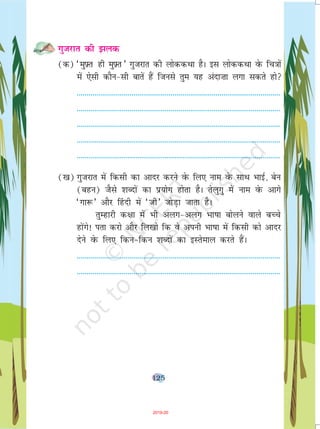 गुजरात की झलक
(क) 'मुफ़्त ही मुफ़्त' गुजरात की लोककथा है। इस लोककथा के चित्रों
में ऐसी कौन-सी बातें हैं जिनसे तुम यह अंदाज़ा लगा सकते हो?
(ख) गुजरात में किसी का आदर करने के लिए नाम के साथ भाई, बेन
(बहन) जैसे शब्दों का प्रयोग होता है। तेलुगु में नाम के आगे
'गारू' और हिंदी में 'जी' जोड़ा जाता है।
तुम्हारी कक्षा में भी अलग-अलग भाषा बोलने वाले बच्चे
होंगे! पता करो और लिखो कि वे अपनी भाषा में किसी को आदर
देने के लिए किन-किन शब्दों का इस्तेमाल करते हैं।
©
not to be
125
2019-20